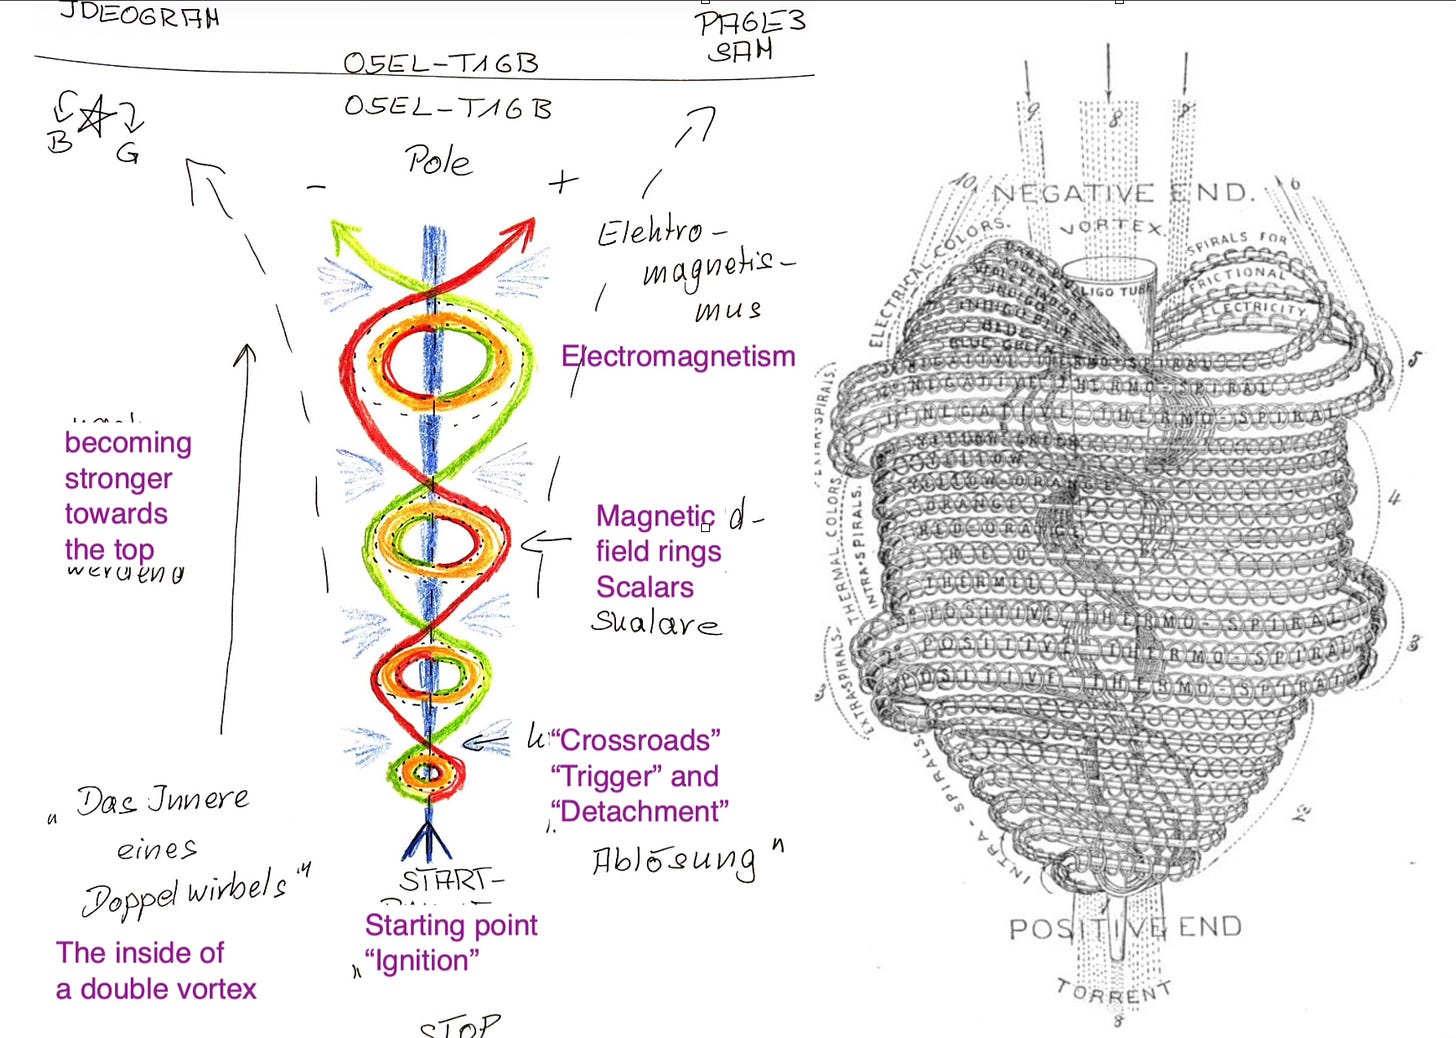 JDEOGRAM
PAGE3
SAM
O5EL-T16B
O5EL-T16B
B
G
Pole
-
+
Elektro-
magnetis-
mus
Electromagnetism
becoming
stronger
towards
the top
werdend
Magnetic d-
field rings
Scalars
Skalare
"Crossroads"
"Trigger" and
"Detachment"
Ablösung"
"Das Innere
eines
Doppelwirbels"
The inside of
a double vortex
START-
Starting point
"Ignition"
STOP
9
8
10
6
NEGATIVE END.
VORTEX
ELECTRICAL COLORS.
SPIRALS FOR
FRICTIONAL
ELECTRICITY
LIGO TUBE
INDIGO BLUE
BLUE
BLUE GREEN
NEGATIVE THERMO-SPIRAL
NEGATIVE THERMO-SPIRAL
NEGATIVE-THERMO-SPIRAL
5
EXTRA-SPIRALS.
YELLOW GREEN
YELLOW
YELLOW-ORANGE
ORANGE
RED-ORANGE
RED
THERMEL
4
THERMAL COLORS.
INTRA-SPIRALS.
POSITIVE-THERMO-SPIRAL
POSITIVE-THERMO-SPIRAL
POSITIVE-THERMO-SPIRAL
3
EXTRA-SPIRALS.
INTRA-SPIRALS
2
POSITIVE END
TORRENT
8